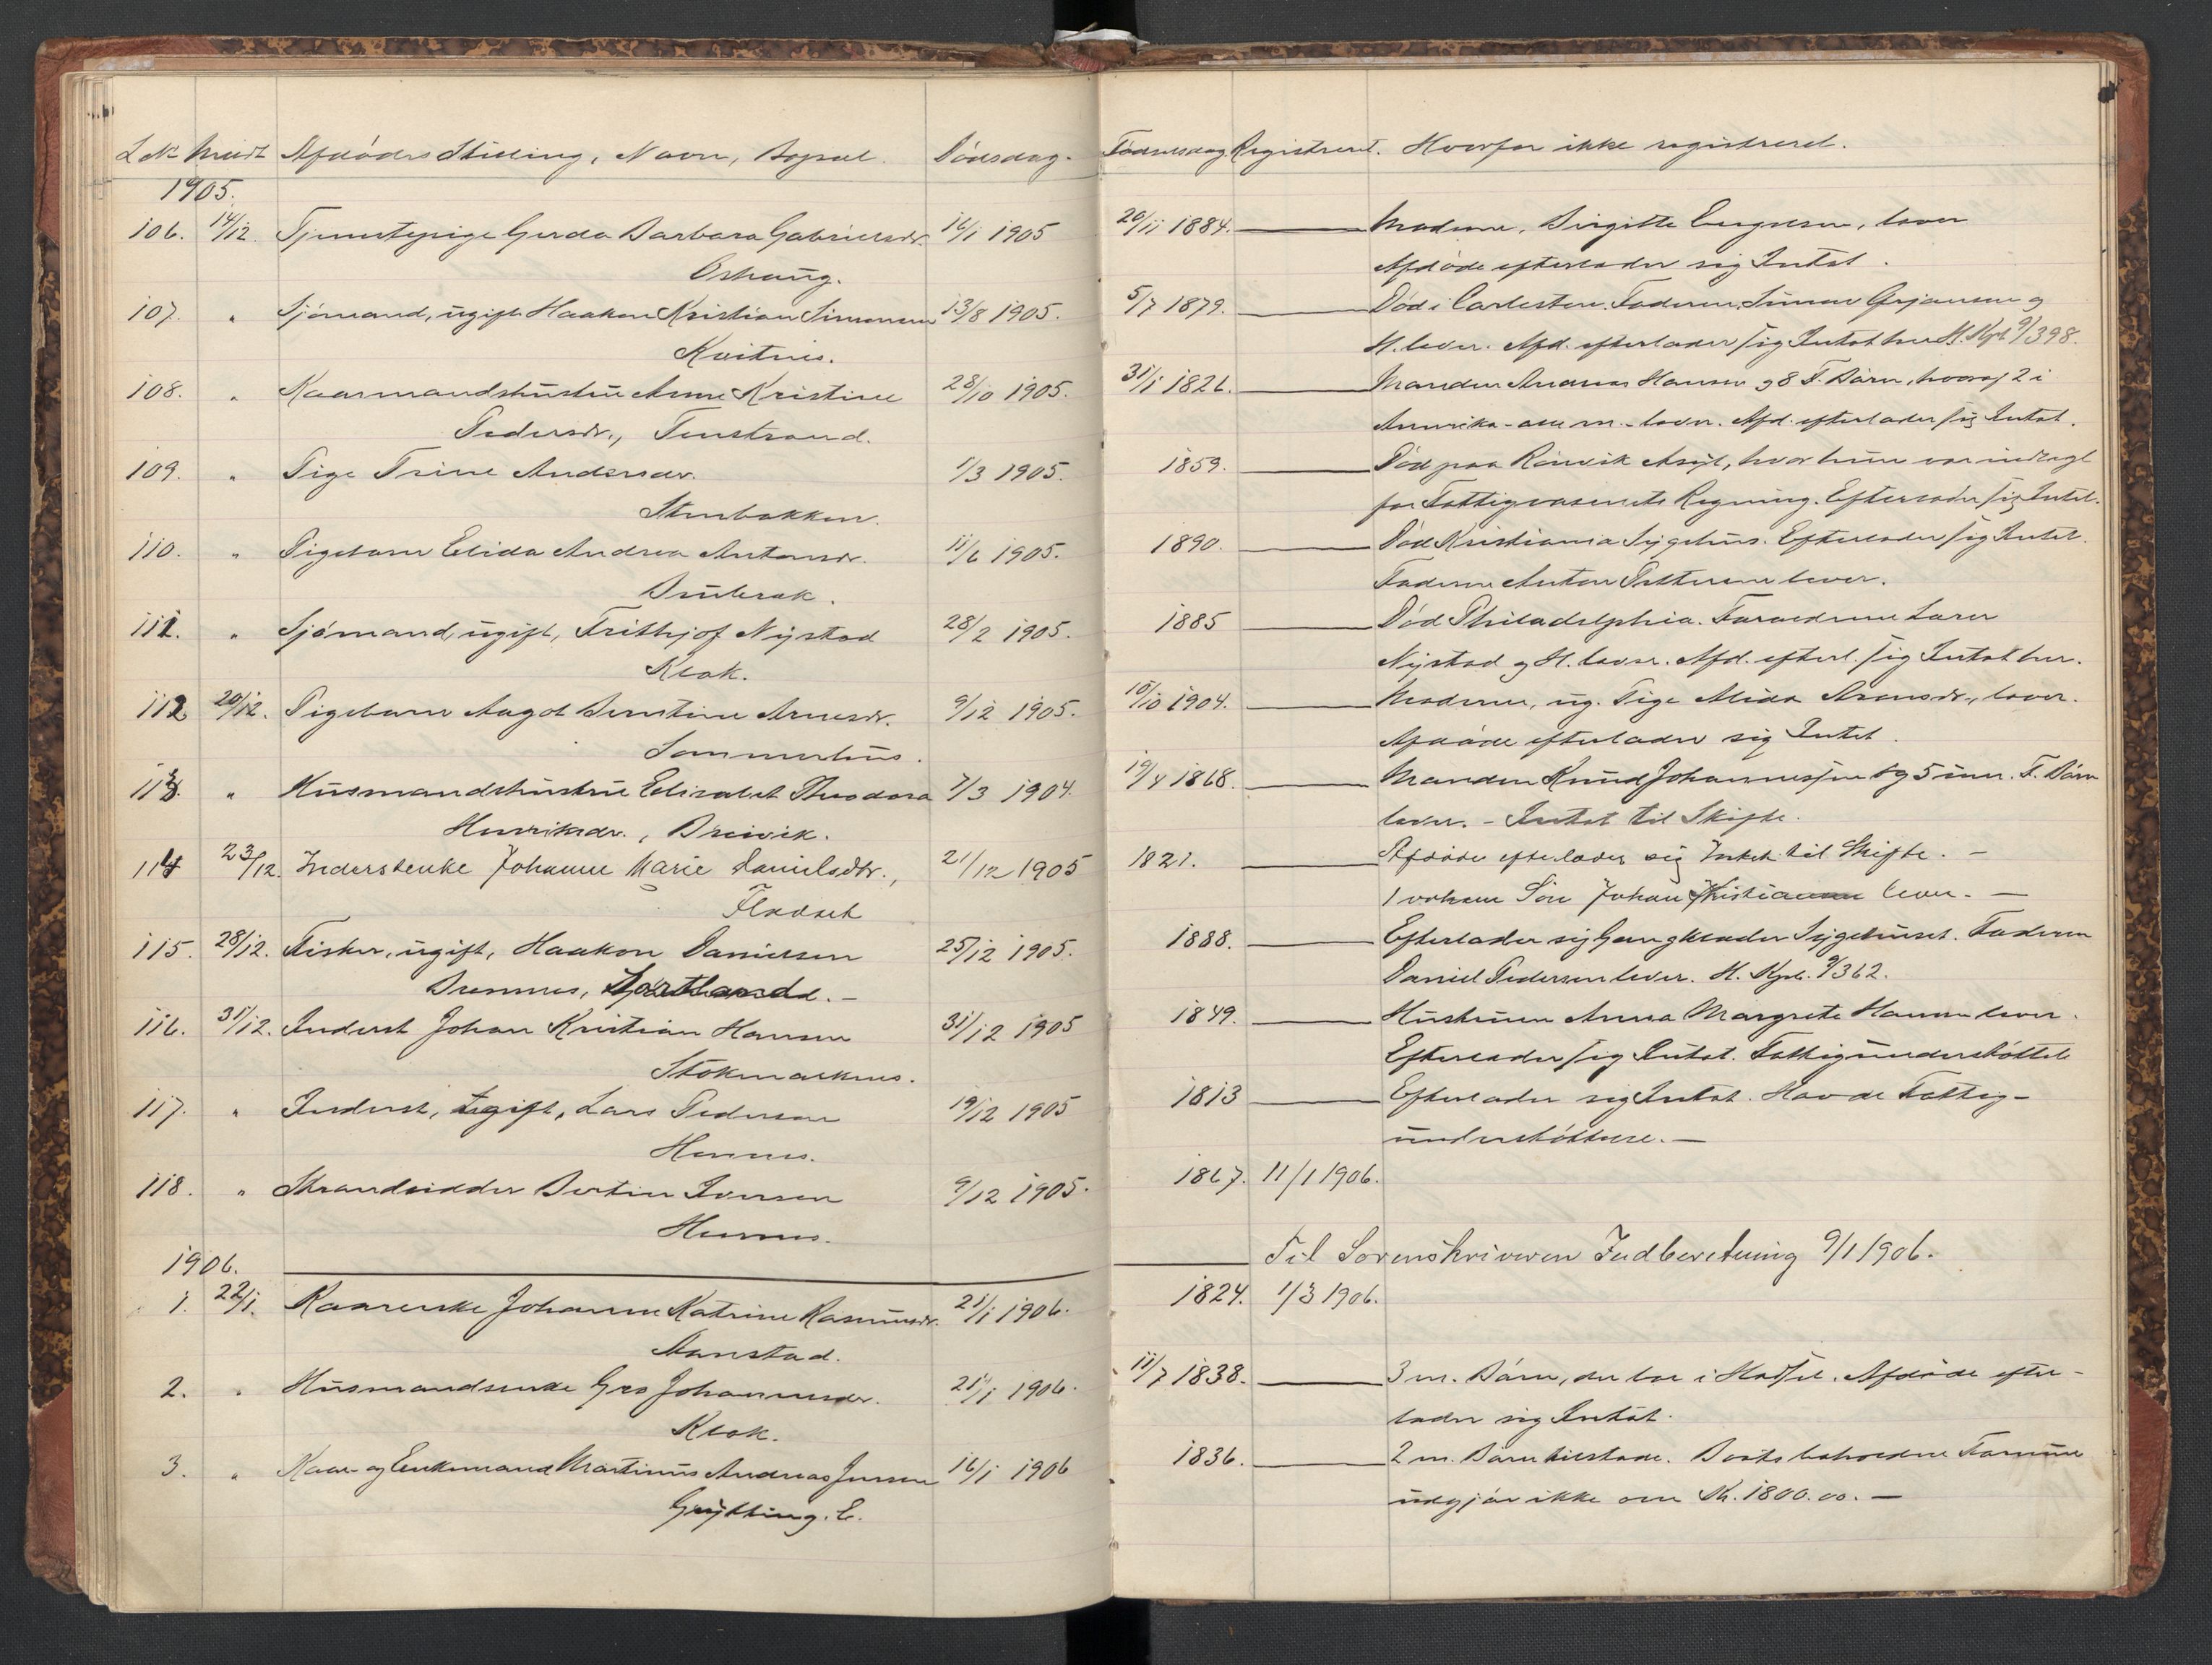 L.No Meldt Afdødes Stilling, Navn, Bopæl. Dødsdag. Fødselsdag Registreret. Hvorfor ikke registreret.
1905.
106. 14/12. Tjenestepige Gerda Barbara Gabrielsdr. 16/1 1905 20/11 1884. Moderen, Birgitte, lever
Oshaug. Afdøde efterlader sig Intet.
107. " Sjømand, ugift Haakon Kristian Simonsen 13/8 1905. 5/7 1879. Død i. Faderen, Simon og
Kvitnes. H. lever. Afd. efterlader sig Intet her H. Kpr 9/398.
108. " Kaarmandshustru Anne Kristine 28/10 1905. 31/1 1826. Manden Andreas Hansen og 8 F. Børn, hvoraf 2 i
Pedersdr., Amerika - alle m. - lever. Afd. efterlader sig Intet.
109. " Pige Trine Andersdr. 1/3 1905. 1859. Død paa Rønvik Asyl, hvor hun var indlagt
Stenbakken. for Fattigvæsenets Regning. Efterlader sig Intet.
110. " Pigebarn Elida Andrea Antonsdr. 11/6 1905. 1890. Død Kristiania Sygehus. Efterlader sig Intet.
Faderen Anton lever.
111. " Sjømand, ugift, Frithjof Nystad 28/2 1905. 1885 Død Philadelphia. Forældrene Lars
Klok. Nystad og H. lever. Afd. efterl. sig Intet her.
112 20/12. Pigebarn Aagot Berntine Arnesdr. 9/12 1905. 15/10 1904. Moderen, ug. Pige Alida Aronsdr., lever.
Sommerhus. Afdøde efterlader sig Intet.
113. " Husmandshustru Elisabet Theodora 7/3 1904. 19/4 1868. Manden Knud Johannessen og 5 um. F. Børn
Henriksdr., Breivik. lever. - Intet til Skifte.
114 23/12. Inderstenke Johanne Marie Danielsdtr., 21/12 1905 1821. Afdøde efterlader sig Intet til Skifte. -
Fladset 1 voksen Søn Johan Kristian lever. -
115. 28/12. Fisker, ugift, Haakon Danielsen 25/12 1905. 1888. Efterlader sig Gangklæder Sygehuset. Faderen
Bremnes, Daniel Pedersen lever. H. Kpr. 9/362.
116. 31/12. Inderst Johan Kristian Hansen 31/12 1905 1849. Hustruen Anna Margrete Hansen lever.
Stokmarknes. Efterlader sig Intet. Fattigunderstøttet
117. " Inderst, ugift, Lars Pedersen 19/12 1905 1813 Efterlader sig Intet. Havde Fattig-
Hennes. understøttelse. -
118. " Strandsidder Bertin Iversen 9/12 1905. 1867. 11/1 1906.
Hennes.
1906. Til Sorenskriveren Indberetning 9/1 1906.
1. 22/1. Kaarenke Johanne Katrine Rasmusdr. 21/1 1906. 1824. 1/3 1906.
Manstad.
2. " Husmandsenke Gro Johannesdr. 21/1 1906. 11/7 1838. 3 m. Børn, der bor i Hadsel. Afdøde efter-
Klok. lader sig Intet.
3. " Kaar- og Enkemand Martinus Andreas Jensen 16/1 1906 1836. 2 m. Børn tilstede. Boets beholdne Formue
Grytting. E. udgjør ikke over Kr. 1800.00. -